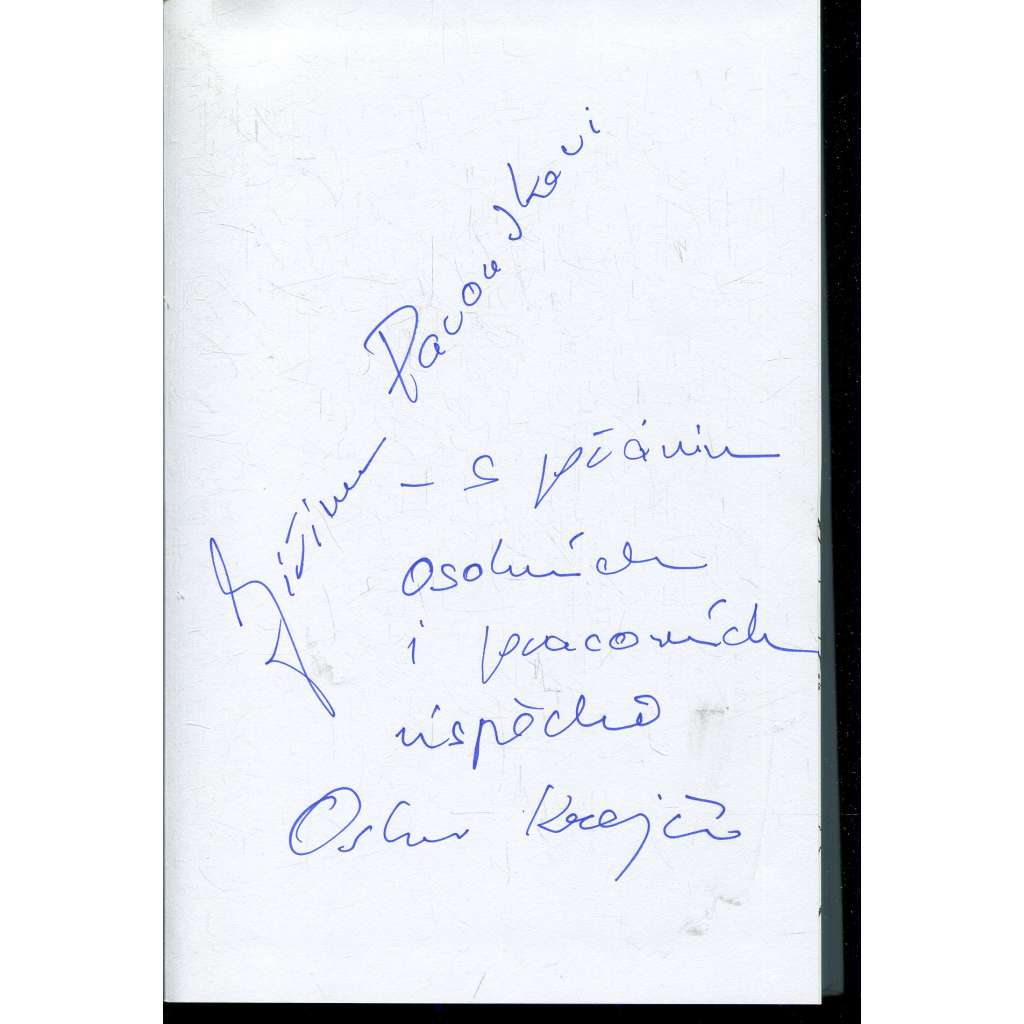 Jiřímu Pacovskovi
- s přáním
osobních
i pracovních
úspěchů
Oskar Krejčí